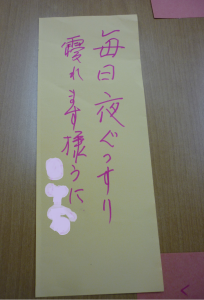 毎日夜ぐっすり
寝れます様うに
く